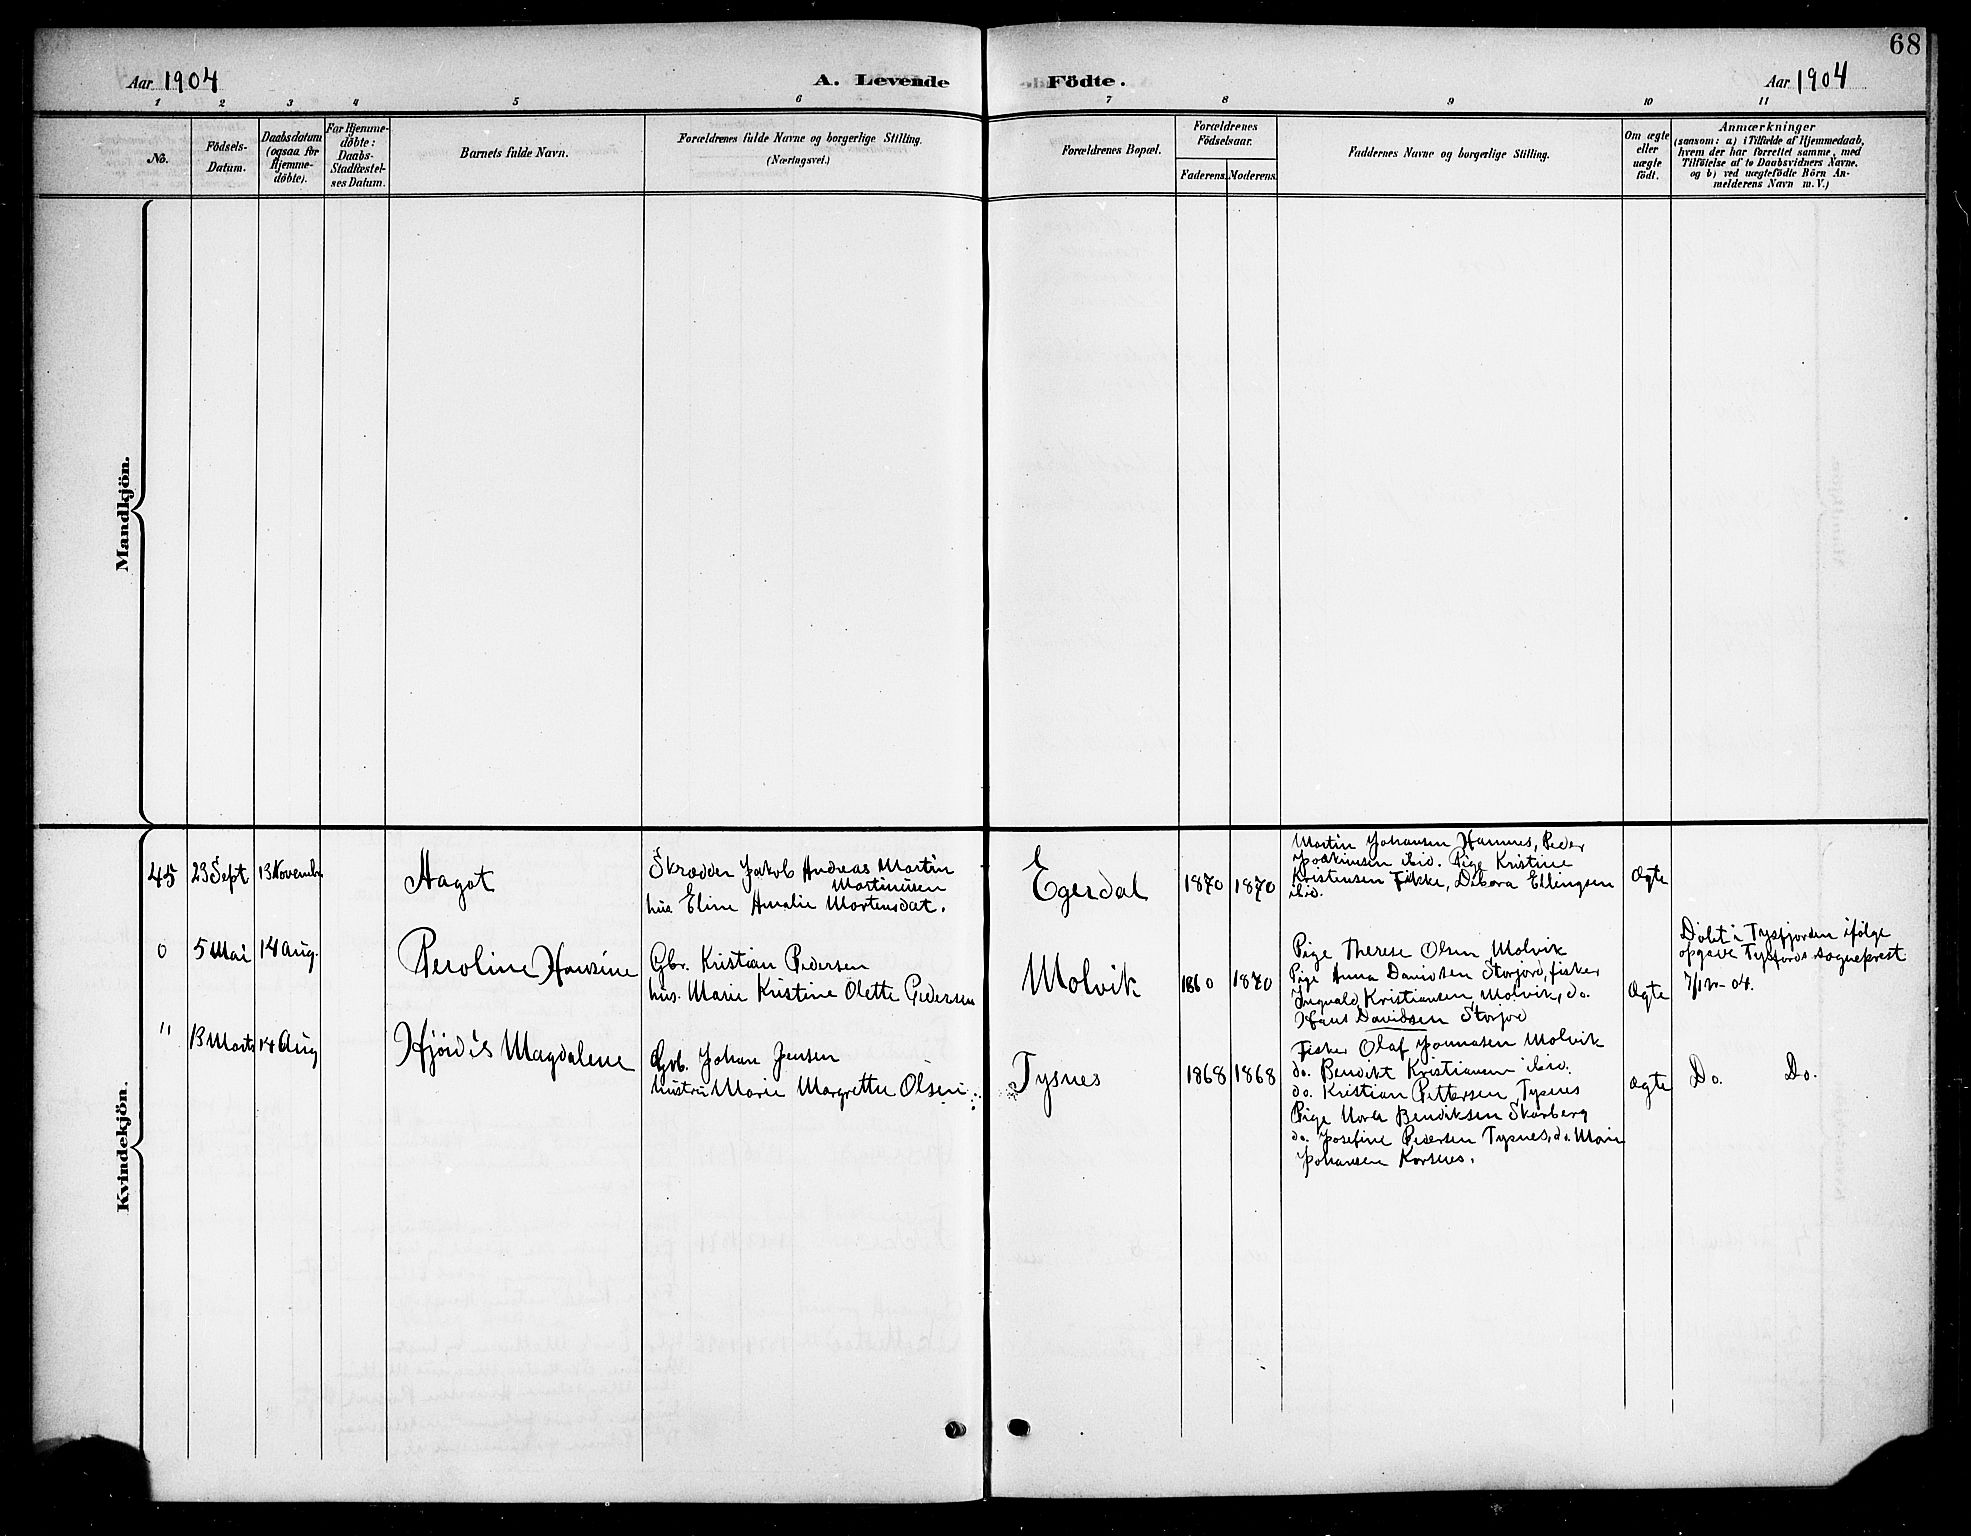 68
Aar 1904
A. Levende Födte.
Aar 1904
1 2 3 4 5 6 7 8 9 10 11
No.
Födsels-
Datum.
Daabsdatum
(ogsaa for
Hjemme-
döbte).
For Hjemme-
döbte:
Daabs-
Stadfæstel-
ses Datum.
Barnets fulde Navn.
Forældrenes fulde Navne og borgerlige Stilling.
(Næringsvei.)
Forældrenes Bopæl.
Forældrenes
Födselsaar.
Faderens. Moderens.
Faddernes Navne og borgerlige Stilling.
Om ægte
eller
uægte
født.
Anmærkninger
(saasom: a) i Tilfælde af Hjemmedaab,
hvem der har forrettet samme, med
Tilföielse af to Daabsvidners Navne,
og b) ved uægtefödte Börn An-
melderens Navn m. V.)
Mandkjön.
Kvindekjön.
45
23 Sept
13 Novembr
Aagot
Skrædder Jakob Andreas Martin
Martinusen
hus Eline Amalie Mortensdat.
Egesdal
1870
1870
Martin Johansen Hamnes, Peder
Joakimsen ibid. Pige Kristine
Kristensen Fikke, Debora Ellingsen
ibid.
Ægte
0
5 Mai
14 Aug.
Peroline Hansine
Gbr. Kristian Pedersen
hus. Marie Kristine Olette Pedersen
Molvik
1860
1870
Pige Therese Olsen Molvik
Pige Anna Davidsen Storjord, fisker
Ingvald Kristiansen Molvik, do.
Hans Davidsen Storjord
Ægte
Døbt i Tysfjorden ifølge
opgave Tysfjords sogneprest
7/12 - 04.
"
13 Marts
14 Aug
Hjørdis Magdalene
Gbr. Johan Jensen
hustru Marie Margrethe Olsen
Tysnes
1868
1868
Fisker Olaf Jonnasen Molvik
do. Benedikt Kristiansen ibid.
do. Kristian Pettersen, Tysnes
Pige Nora Bendiksen Skarberg
do. Josefine Pedersen Tysnes, do. Marie
Johansen Korsnes.
Ægte
Do. Do.